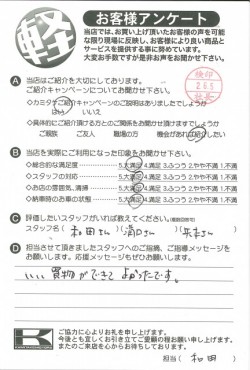 軽
お客様アンケート
当店では、お買い上げ頂いたお客様の声を可能
な限り現場に反映し、お客様により良い商品と
サービスを提供する事に努めています。
大変お手数ですが是非お声をお聞かせ下さい。
A 当店はご紹介を大切にしております。
ご紹介キャンペーンについてお聞かせ下さい。
◇カミタケご紹介キャンペーンのご説明はありましたでしょうか
はい いいえ
◇具体的にご紹介頂ける方とのご関係をお聞かせ頂けますでしょうか
ご親族 ご友人 職場の方 機会があれば紹介したい
B 当店を実際にご利用になった印象をお聞かせ下さい。
◇総合的な満足度 5.大満足 4.満足 3.ふつう 2.やや不満 1.不満
◇スタッフの対応 5.大満足 4.満足 3.ふつう 2.やや不満 1.不満
◇お店の雰囲気、清掃 5.大満足 4.満足 3.ふつう 2.やや不満 1.不満
◇納車時のお車の状態 5.大満足 4.満足 3.ふつう 2.やや不満 1.不満
C 評価したいスタッフがいれば教えてください。
スタッフ名( 和田さん )( さん )( さん )
D 担当させて頂きましたスタッフへのご指摘、ご指導メッセージを
お願いします。応援メッセージもぜひお願いします。
いい買物ができてよかったです。
K
ご協力に心よりお礼を申し上げます。
今後とも宜しくお引き立てご愛顧の程お願い申し上げます。
またのご来店を心からお待ちしております。
担当( 和田 )